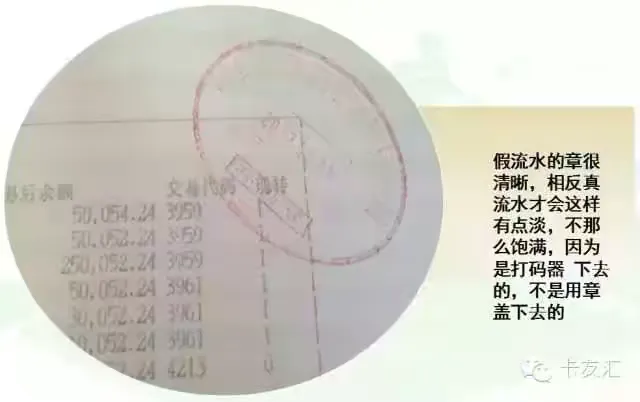 易后余额 交易代码 现转
50,054.24 3959 1
50,052.24 3959 1
250,052.24 3959 1
50,052.24 3961 1
30,052.24 3961 1
0,052.24 3961 1
52.24 4213 0
假流水的章很
清晰，相反真
流水才会这样
有点淡，不那
么饱满，因为
是打码器 下去
的，不是用章
盖下去的
卡友汇